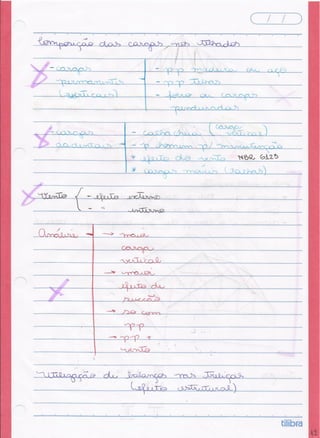 Composição das cargas nas
- cargas permanentes (verticais)
- p.p madeira ou aço
- p.p
- forro ou cargas penduradas
- cargas acidentais
- (carga vertical)
- p. homem p/ manutenção
* efeito do vento NBR 6123
* cargas
Vento { - efeito externo
- " interno
Análise → maior
carga
vertical
→ maior
efeito de
sucção
→ só com
p.p
→ p.p +
vento
Utilização de balanços nas treliças
(efeito estrutural)
tilibra